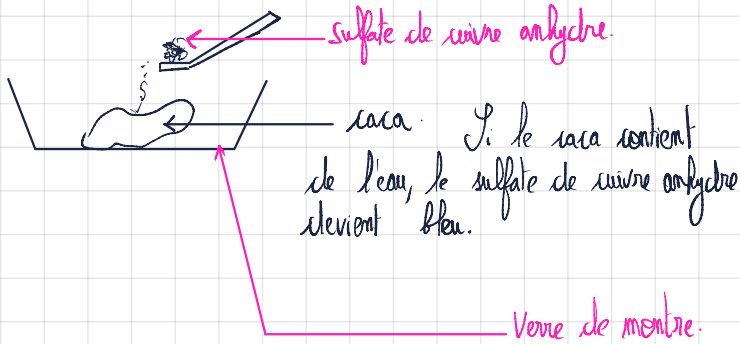 sulfate de cuivre anhydre.
caca. Si le caca contient
de l'eau, le sulfate de cuivre anhydre
devient bleu.
Verre de montre.